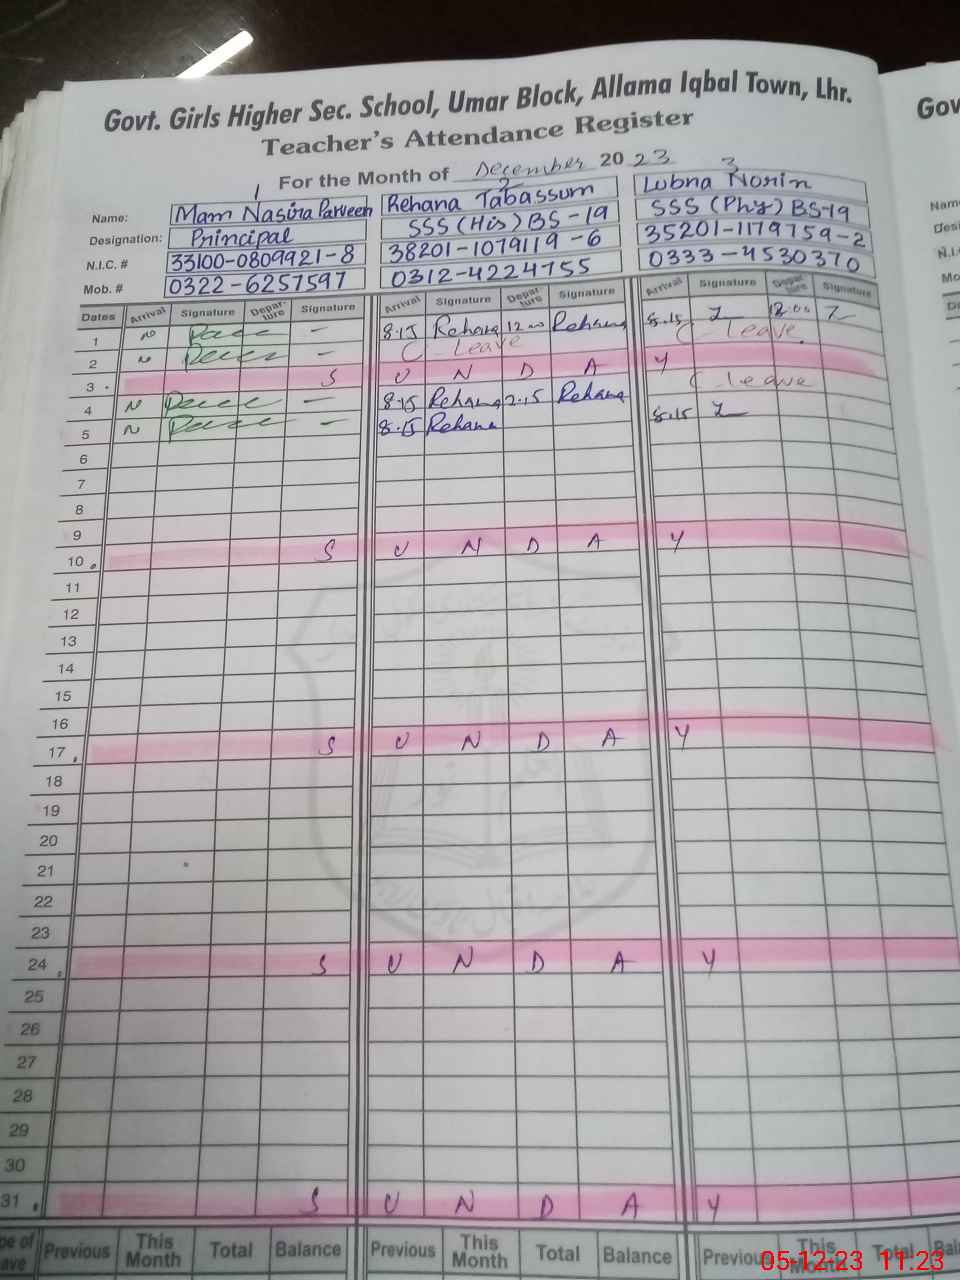 Govt. Girls Higher Sec. School, Umar Block, Allama Iqbal Town, Lhr.
Gov
Teacher's Attendance Register
For the Month of December 2023
1 2 3
Name: Mam Nasira Parveen Rehana Tabassum Lubna Norin
Name
Designation: Principal SSS (His) BS-19 SSS (Phy) BS-19
Desi
N.I.C. # 33100-0809921-8 38201-1079119-6 35201-1179759-2
N.I.
Mob. # 0322-6257597 0312-4224755 0333-4530370
Mo
Dates Arrival Signature Depar-ture Signature Arrival Signature Depar-ture Signature Arrival Signature Depar-ture Signature
1 N — 8.15 Rehana 12.00 Rehana 8.15 12.00
2 N — C-Leave C-Leave
3 S U N D A Y
4 N — 8.15 Rehana 2.15 Rehana C leave
5 N — 8.15 Rehana 8.15
6
7
8
9
10 S U N D A Y
11
12
13
14
15
16
17 S U N D A Y
18
19
20
21
22
23
24 S U N D A Y
25
26
27
28
29
30
31 S U N D A Y
pe of Previous This Month Total Balance Previous This Month Total Balance Previous This Month Total Bal
ave
05-12-23 11:23